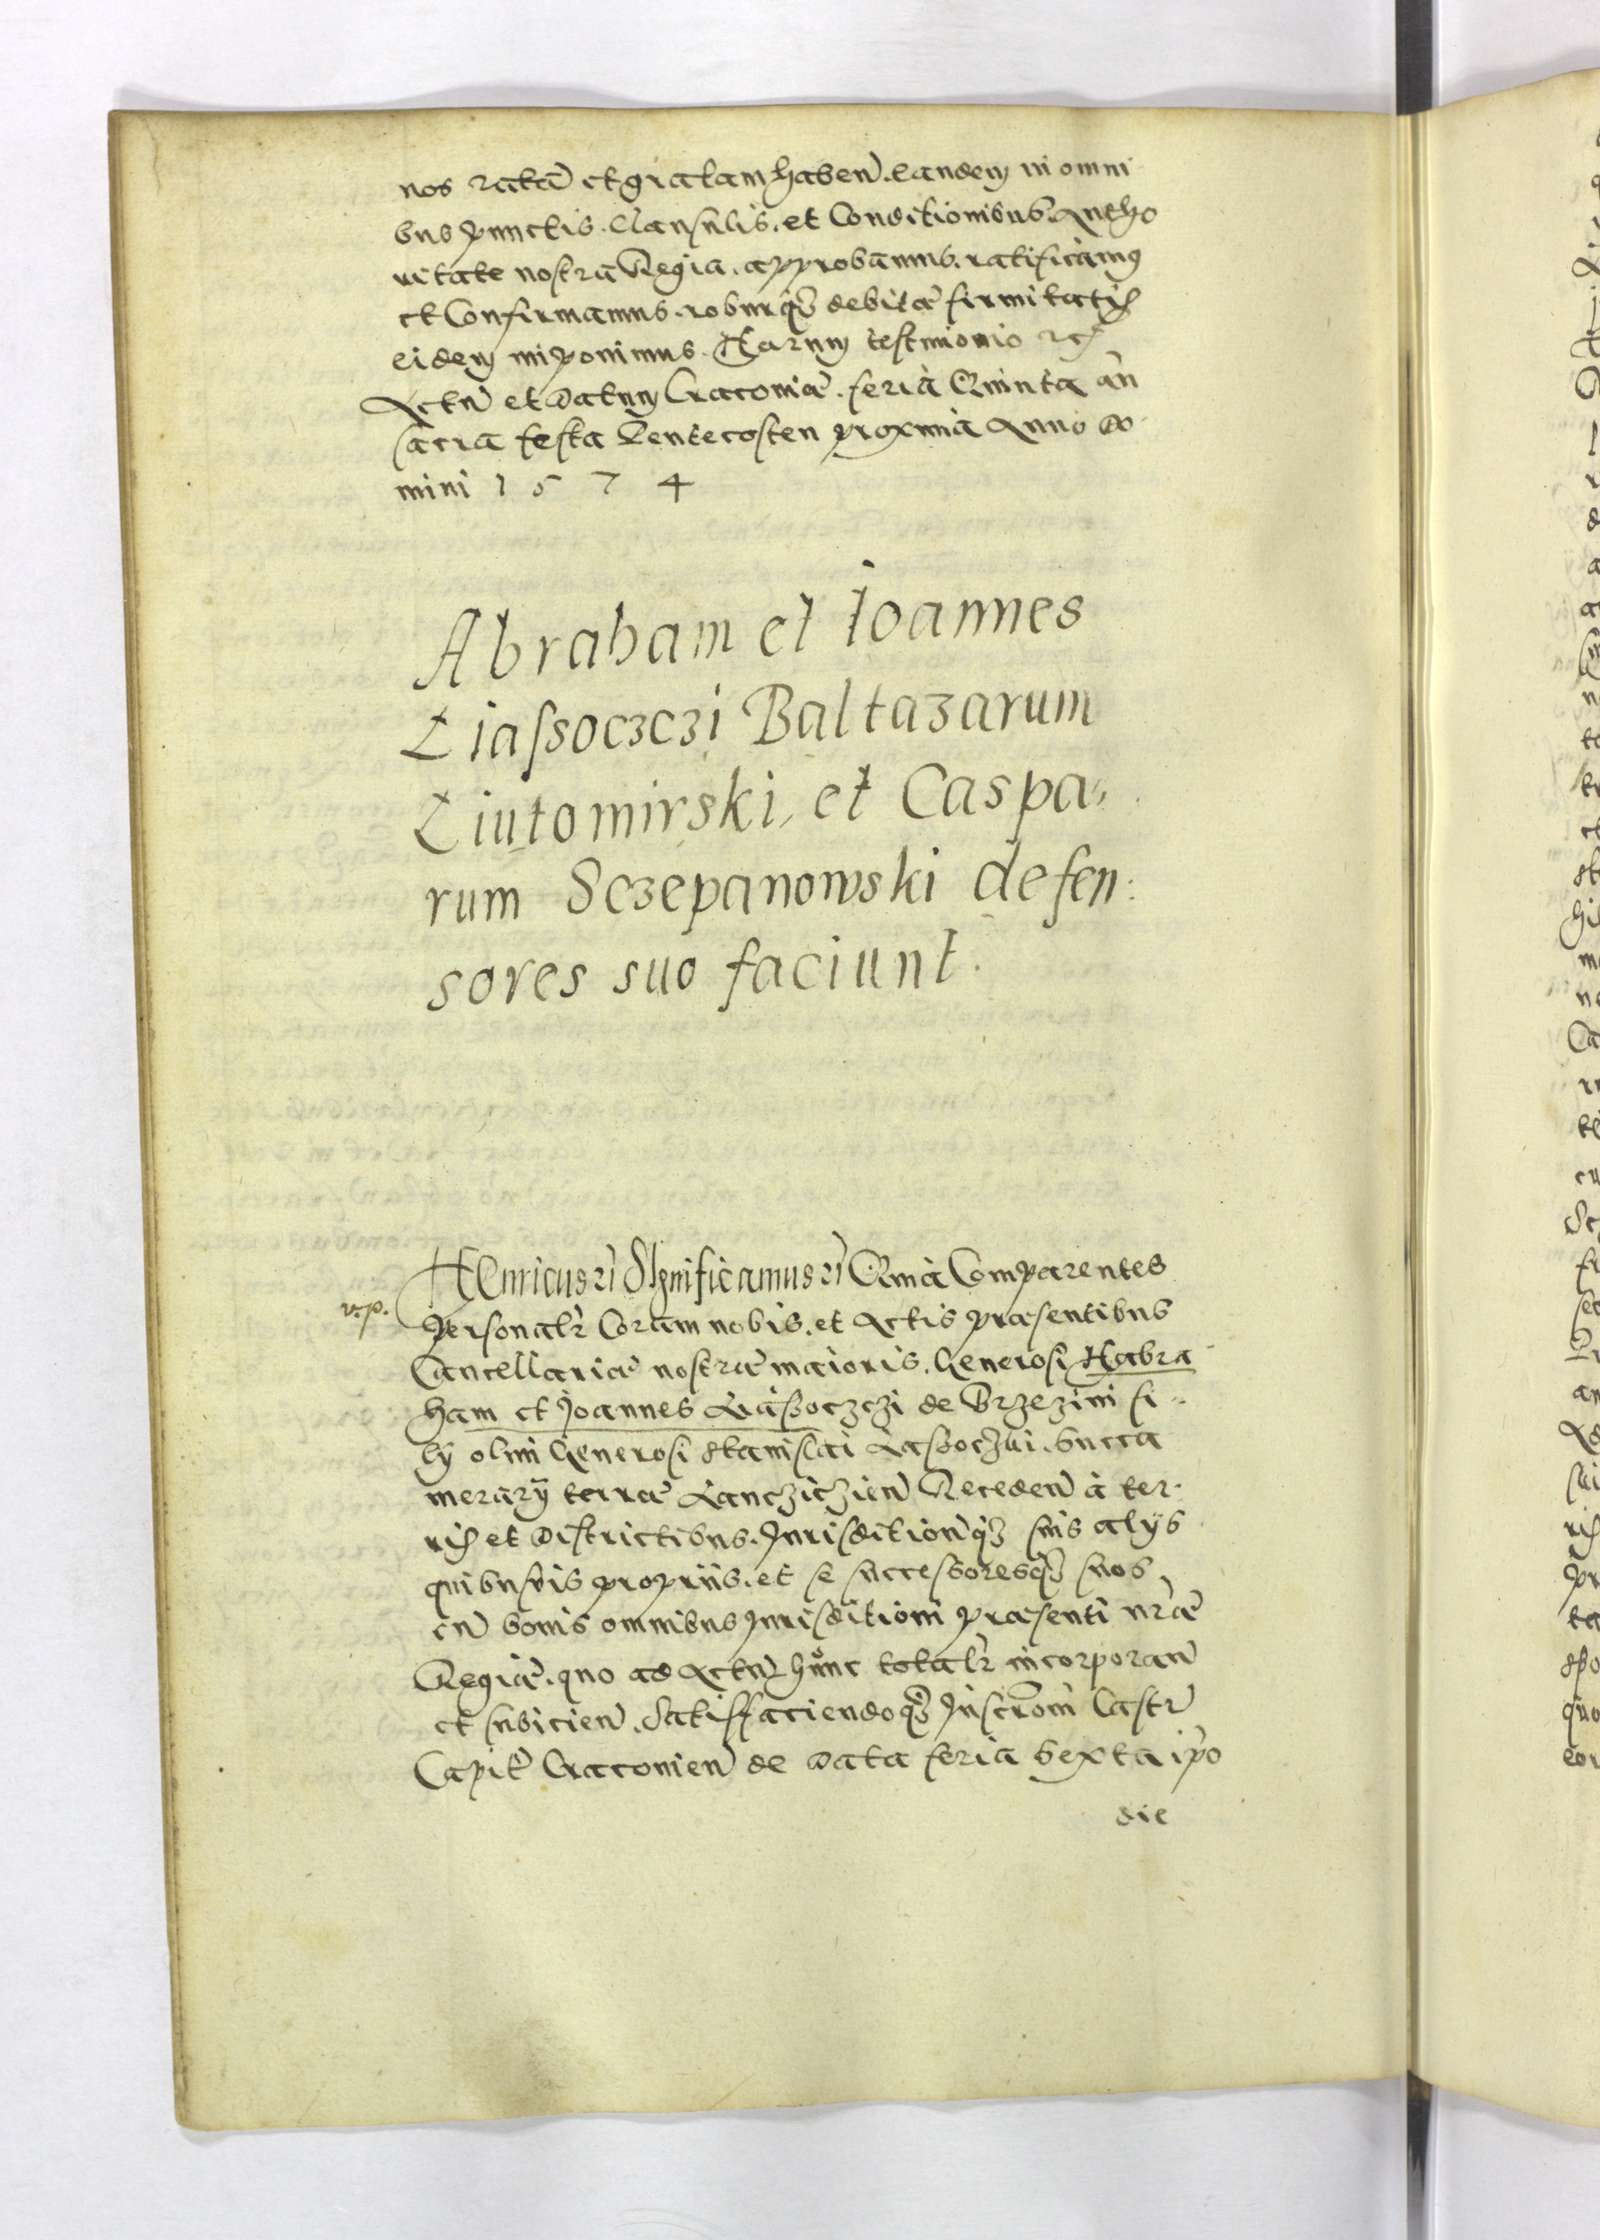 nos ratã et gratam habeñ. eandem in omni
bus punctis. Clausulis. et Conditionibus. Autho
ritate nostra Regia. approbamus. ratificamus
et Confirmamus. roburq3 debitæ firmitatis
eidem imponimus. Harum testimonio etc
Actũ et Datum Cracoviæ. feria Quinta añ
sacra festa Pentecosten proxima Anno Do
mini 1574
Abraham et Ioannes
Liassoczczi Baltazarum
Liutomirski, et Caspa,,
rum Sczepanowski defen:
sores suo faciunt.
HEnricus etc̃ SIgnificamus etc̃ Quia Comparentes
v. p.
personalr̃ Coram nobis. et Actis præsentibus
Cancellariæ nostræ maioris. Generosi Habra
ham et Joannes Liassoczczi de Brzezini fi..
lÿ olim Generosi Stanislai Lassoczki. Succa
merarÿ terræ Lancziczieñ Recedeñ à ter.
ris et Districtibus. Jurisditionq3 suis alÿs
quibusvis propriis. et se successoresq3 suos
cũ bonis omnibus Jurisditioni præsenti nr̃æ
Regiæ. quo ad Actũ hunc totalr̃ incorporañ
et subicień. Satisffaciendoq3 Inscrõni Castr̃
Capit̃ Cracovień de Data feria Sexta ip̃o
die